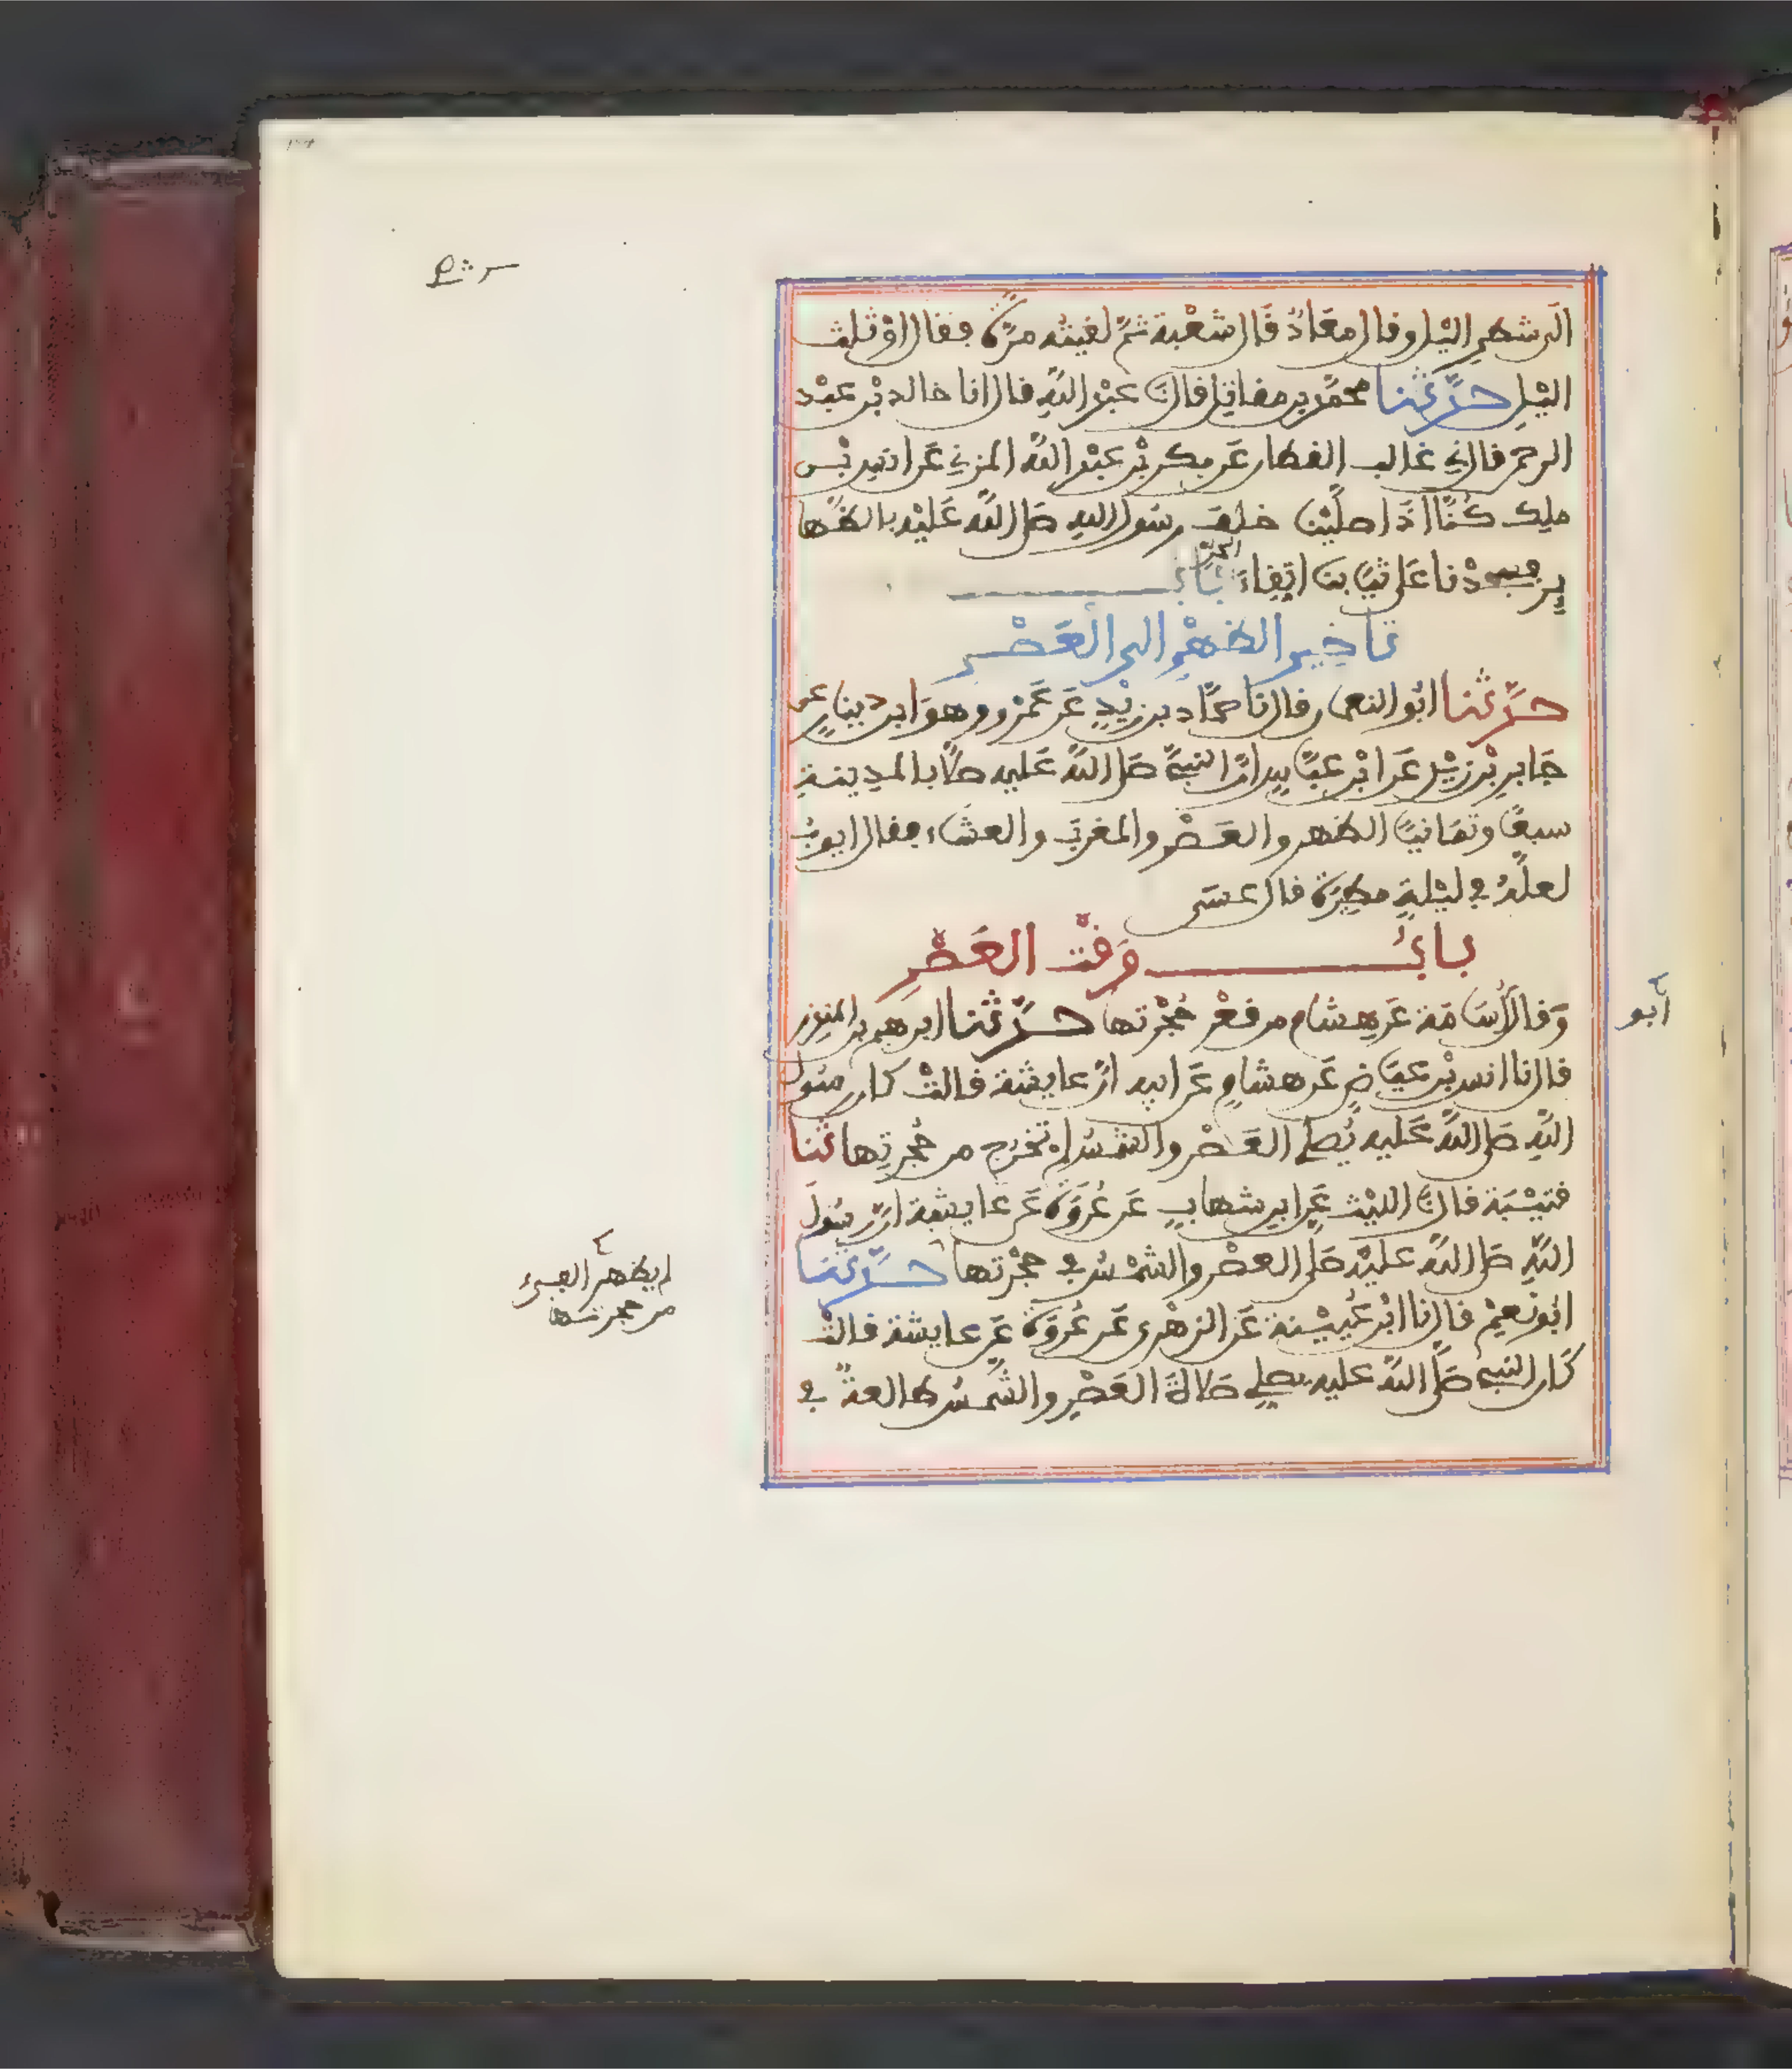 الى شطر اليل وقال معاذ قال شعبة ثم لقيته مرة فقال او ثلث
اليل حدثنا محمد بن مقاتل قال انا عبد الله قال انا خالد بن عبد
الرحمن قال ني غالب القطان عن بكر بن عبد الله المزني عن انس بن
ملك كنا اذا صلينا خلف رسول الله صلى الله عليه بالظها
ير فسجدنا على ثيابنا اتقاء الحر باب
تاخير الظهر الى العصر
حدثنا ابو النعمان قال نا حماد بن زيد عن عمرو وهو ابن دينار عن
جابر بن زيد عن ابن عباس ان النبي صلى الله عليه صلا بالمدينة
سبعا وثمانيا الظهر والعصر والمغرب والعشاء فقال ايوب
لعله في ليلة مطيرة قال عسى
باب وقت العصر
وقال أسامة عن هشام من قعر حجرتها حدثنا ابرهيم بن المنذر
أبو
قال نا انس بن عياض عن هشام عن ابيه ان عايشة قالت كان رسول
الله صلى الله عليه يصلي العصر والشمس لم تخرج من حجرتها ثنا
قتيبة قال نا الليث عن ابن شهاب عن عروة عن عايشة ان رسول
الله صلى الله عليه صلى العصر والشمس في حجرتها حدثنا
لم يظهر الفيء
من حجرتها
ابو نعيم قال نا ابن عيينة عن الزهري عن عروة عن عايشة قالت
كان النبي صلى الله عليه يصلي صلاة العصر والشمس طالعة في